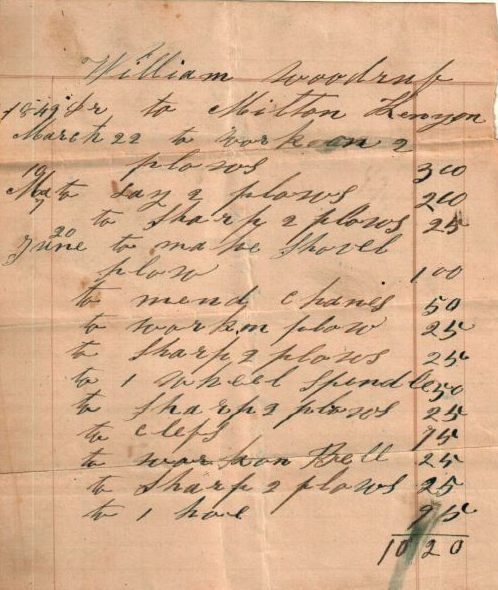 William Woodruf
1849 Dr to Milton Kenyon
March 22 to work on 2
plows 3 00
19 to Lay 2 plows 2 00
7 to Sharp 2 plows 25
June 20 to make Shovel
plow 1 00
to mend chanes 50
to work on plow 25
to Sharp 2 plows 25
to 1 wheel Spendle 50
to Sharp 2 plows 25
to clefs 75
to work on Bell 25
to Sharp 2 plows 25
to 1 hoe 95
10 20